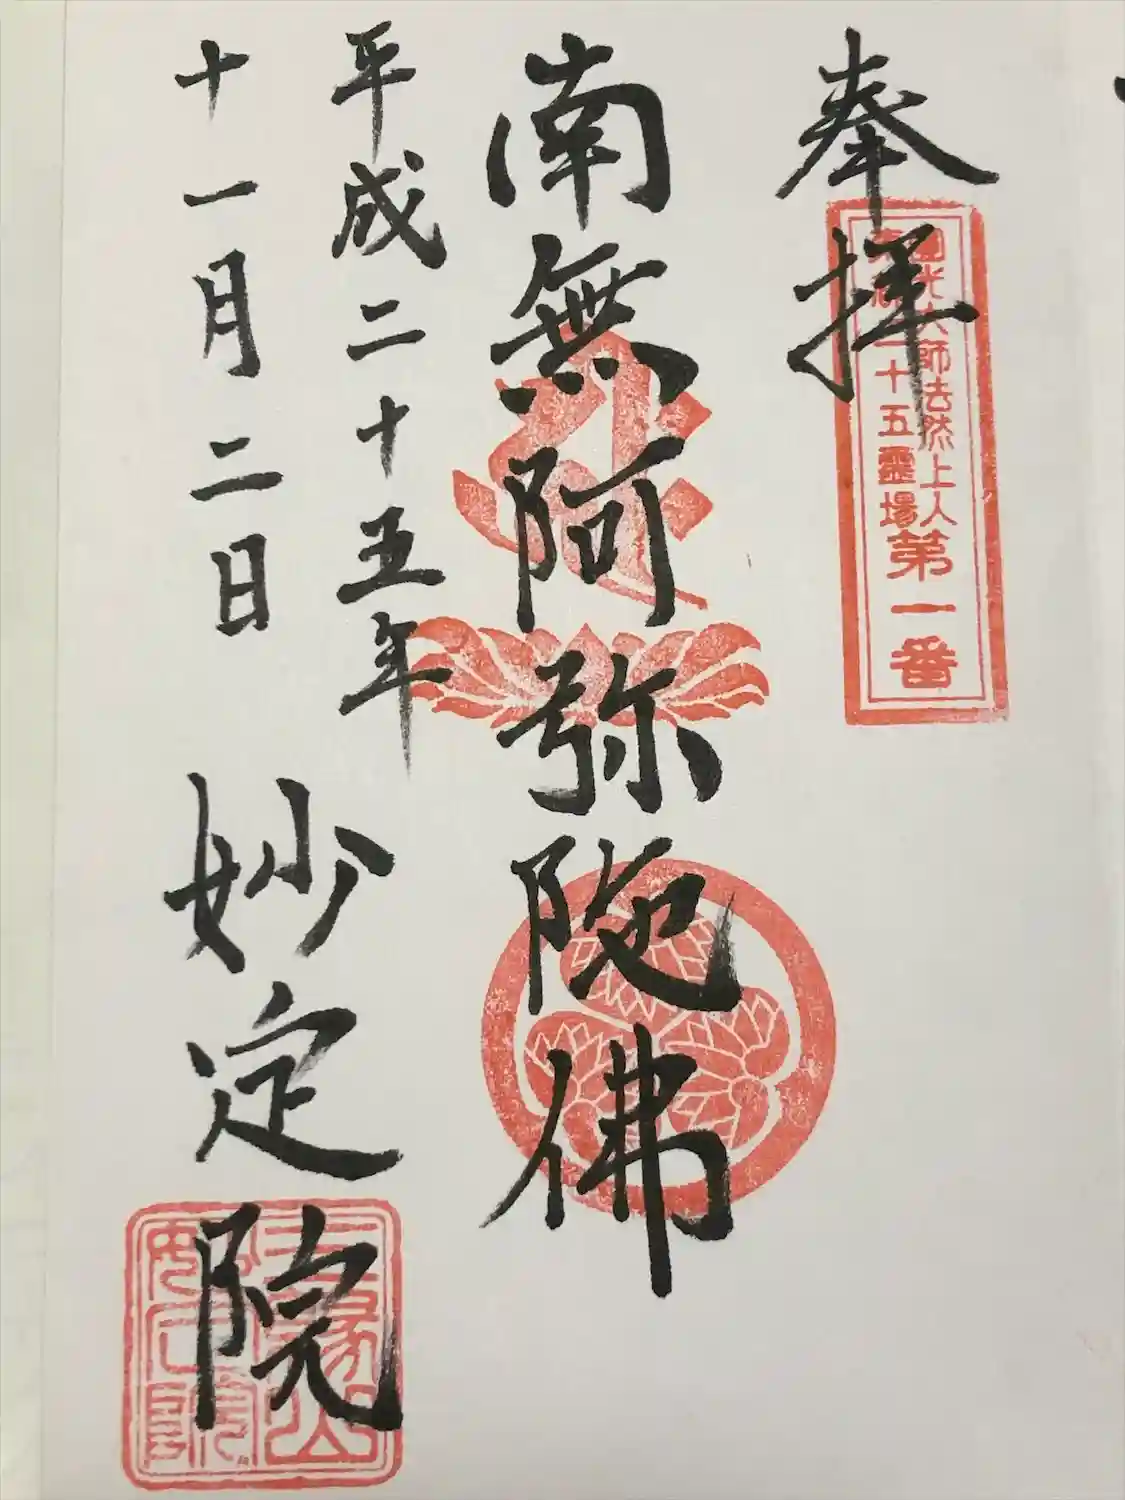 奉拝
圓光大師法然上人
東都二十五霊場
第一番
南無阿弥陀佛
平成二十五年
十一月二日
妙定院